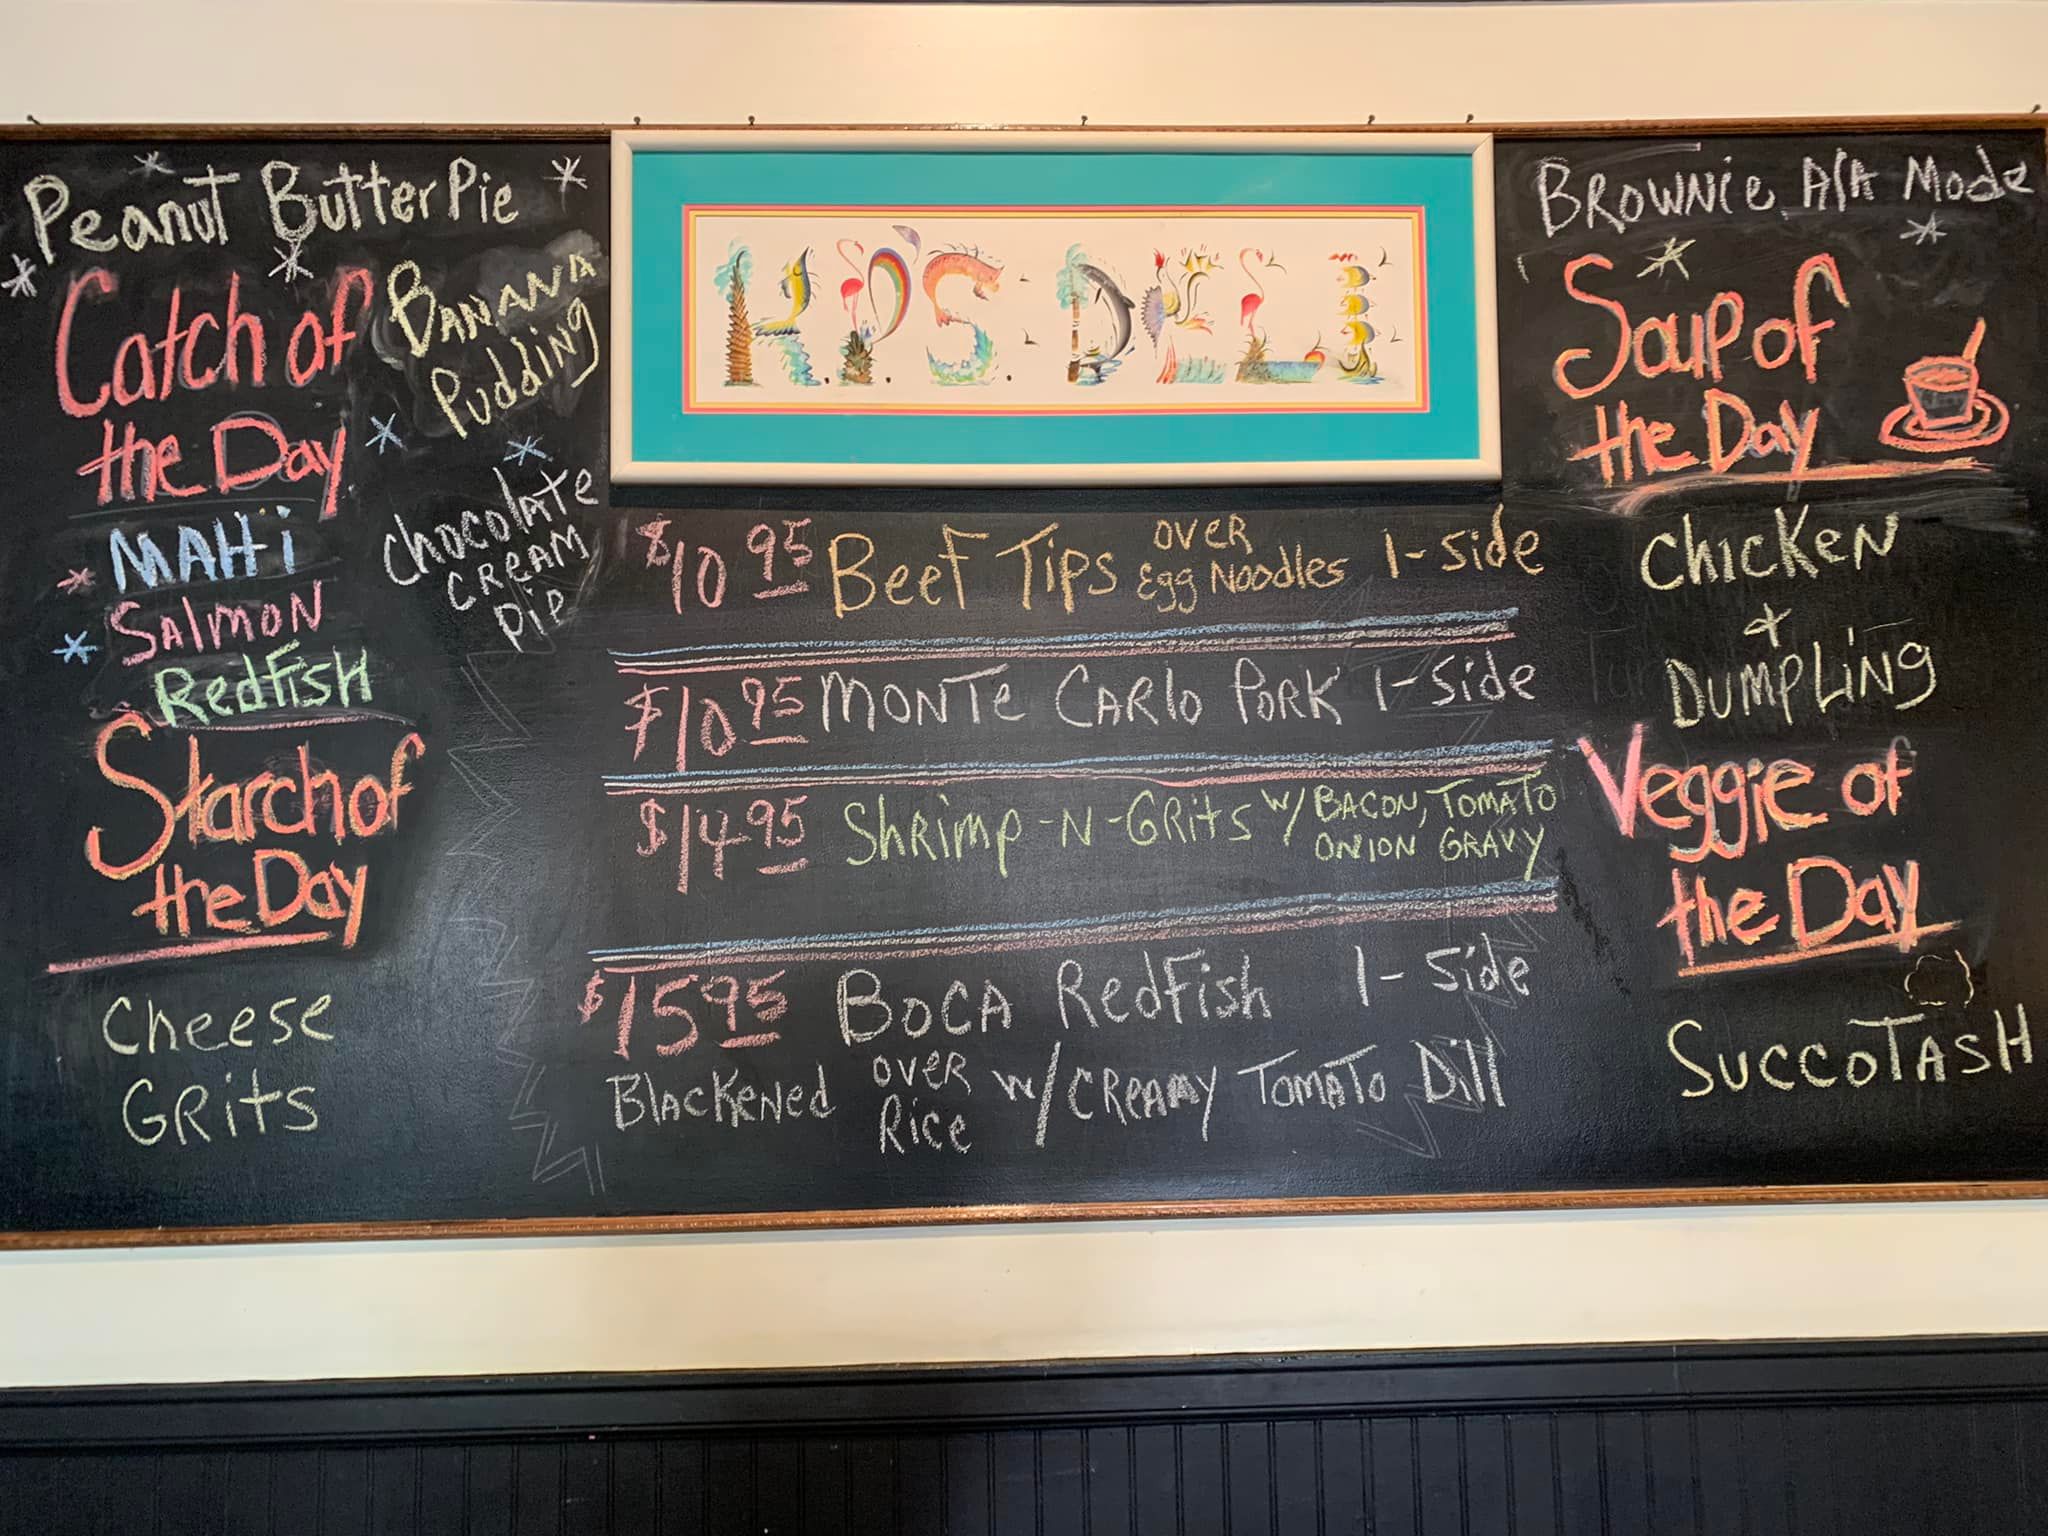 Peanut Butter Pie
Catch of
the Day
MAHi
SALMON
RedFiSH
BANANA
Pudding
Chocolate
CREAM
Pie
Starch of
the Day
Cheese
GRits
K.D.'S. DELI
$10 95 Beef Tips over Egg Noodles 1-Side
$10 95 MONTe CARlo PORK 1-Side
$14 95 Shrimp-N-GRitS w/ BACON, TOMATO
ONION GRAVY
$15 95 BOCA RedFish 1-Side
BlAcKeNed over Rice w/CREAMY TOMATO Dill
BROWNie A/A Mode
Soup of
the Day
Chicken
+
DUMPLiNg
Veggie of
the Day
SUCCOTASH